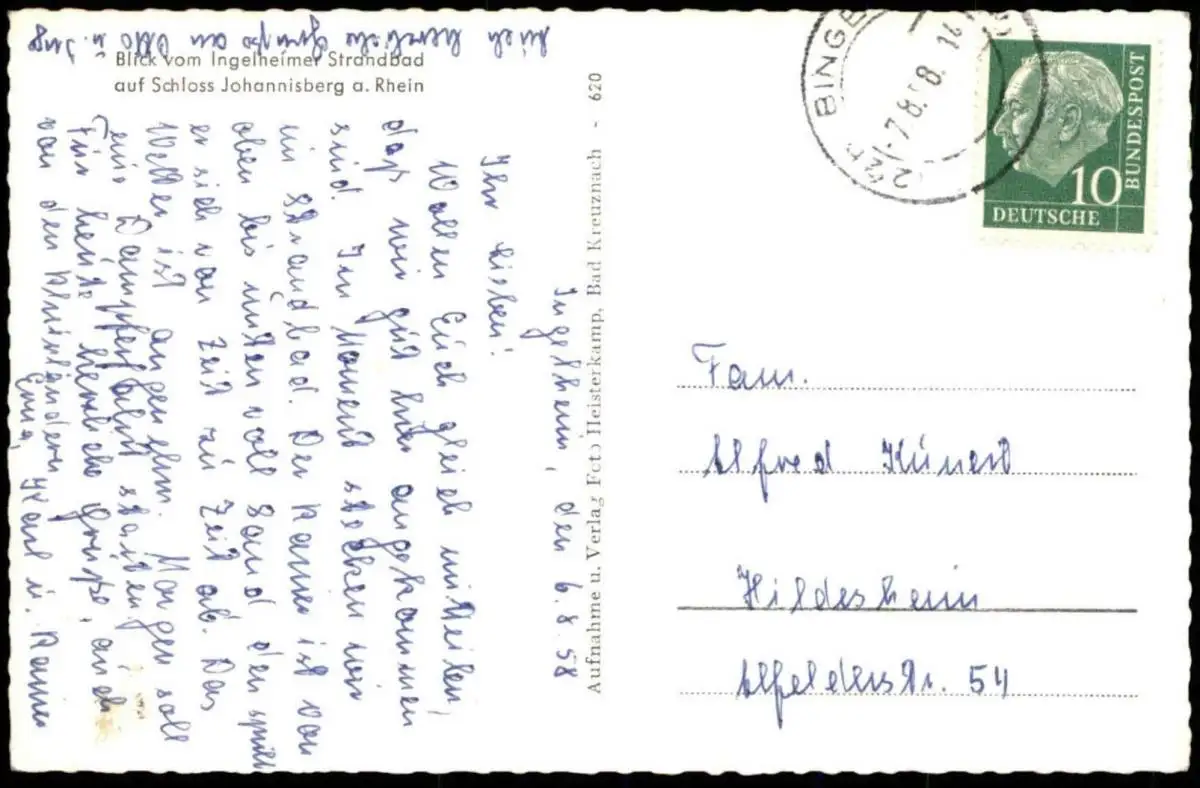 Blick vom Ingelheimer Strandbad
auf Schloss Johannisberg a. Rhein
Ingelheim, den 6.8.58
Ihr Lieben!
Wollen Euch gleich mitteilen,
daß wir gut hier angekommen
sind. Im Moment stecken wir
im Strandbad. Der Rainer ist von
oben bis unten voll Sand den spült
er sich von Zeit zu Zeit ab. Das
Wetter ist angenehm. Morgen soll
eine Dampferfahrt starten.
Für heute herzliche Grüße, auch
von den Rheinländern
Erna, Karl u. Rainer
Auch herzliche Grüße an Otto u. Inge
Aufnahme u. Verlag Foto Heisterkamp, Bad Kreuznach - 620
BINGE
-7.8.58.16
DEUTSCHE
BUNDESPOST
10
Fam.
Alfred Künert
Hildesheim
Alfelderstr. 54